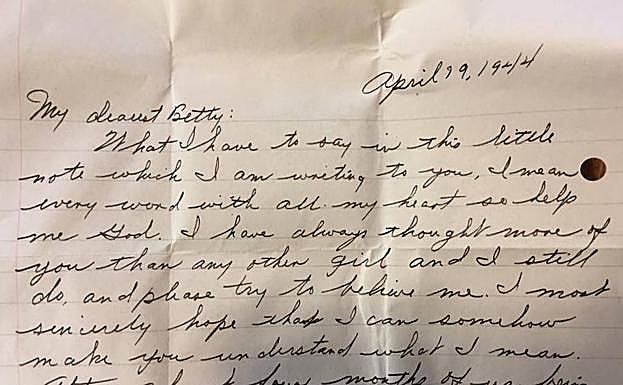 April 19, 1944
My dearest Betty:
What I have to say in this little
note which I am writing to you, I mean
every word with all my heart so help
me God. I have always thought more of
you than any other girl and I still
do, and please try to believe me. I most
sincerely hope that I can somehow
make you understand what I mean.
months of